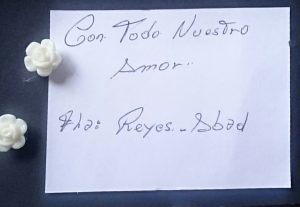 Con Todo Nuestro
Amor..
Fha: Reyes.-Abad